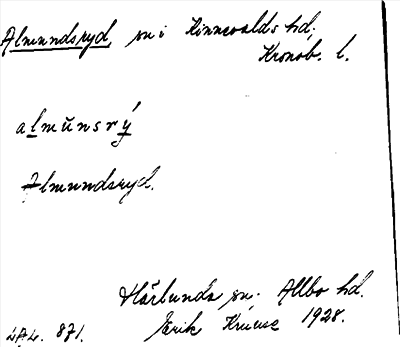 Almundsryd, sn i Kinnevalds hd.
Kronob. l.
almŭnsrý
Almundsryd.
Härlunda sn. Allbo hd.
Erik 1928.
871.